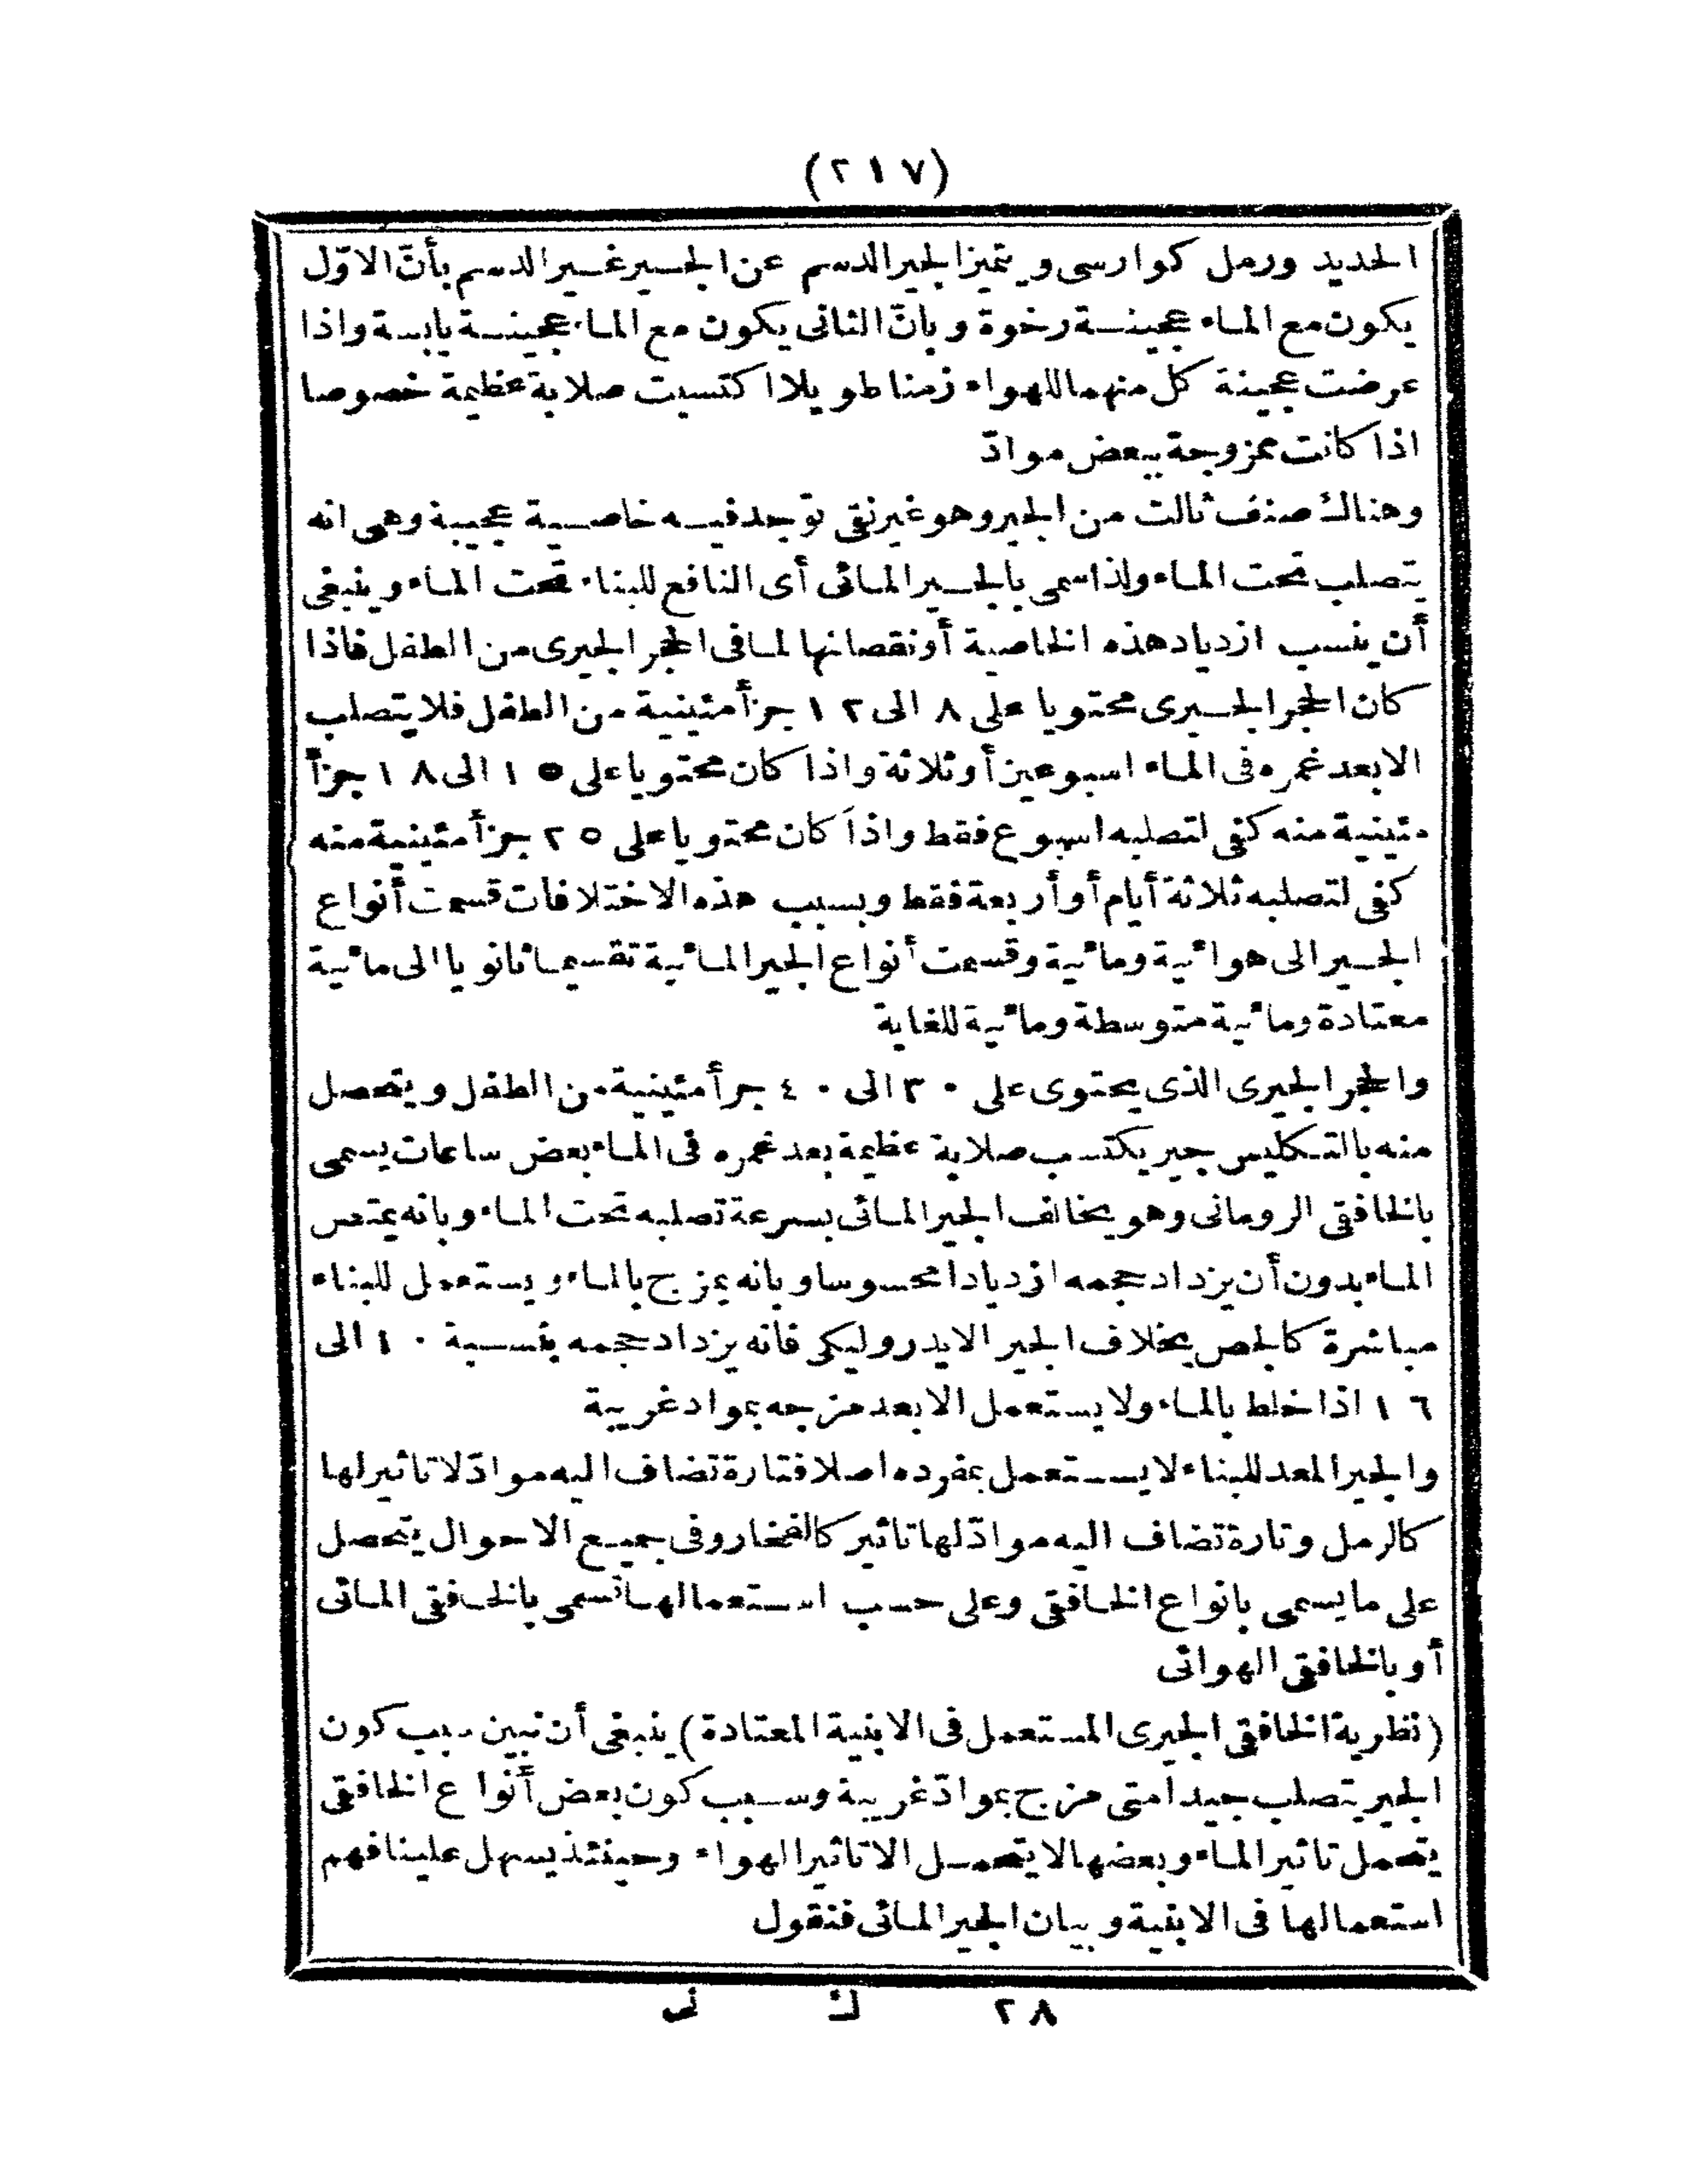 (٢١٧)
الحديد ورمل كوارسى ويتميز الجير الدسم عن الجير غير الدسم بأنّ الاوّل
يكون مع الماء عجينة رخوة وبانّ الثانى يكون مع الماء عجينة يابسة واذا
عرضت عجينة كل منهما للهواء زمنا طويلا اكتسبت صلابة عظيمة خصوصا
اذا كانت ممزوجة ببعض موادّ
وهناك صنف ثالث من الجير وهو غير نقى توجد فيه خاصية عجيبة وهى انه
يتصلب تحت الماء ولذا سمى بالجير المائى أى النافع للبناء تحت الماء وينبغى
أن ينسب ازدياد هذه الخاصية أو نقصانها لما فى الحجر الجيرى من الطفل فاذا
كان الحجر الجيرى محتويا على ٨ الى ١٢ جزأ مئينية من الطفل فلا يتصلب
الا بعد غمره فى الماء اسبوعين أو ثلاثة واذا كان محتويا على ١٥ الى ١٨ جزأ
مئينية منه كفى لتصلبه اسبوع فقط واذا كان محتويا على ٢٥ جزأ مئينية منه
كفى لتصلبه ثلاثة أيام أو أربعة فقط وبسبب هذه الاختلافات قسمت أنواع
الجير الى هوائية ومائية وقسمت أنواع الجير المائية تقسيما ثانويا الى مائية
معتادة ومائية متوسطة ومائية للغاية
والحجر الجيرى الذى يحتوى على ٣٠ الى ٤٠ جرأ مئينية من الطفل ويتحصل
منه بالتكليس جير يكتسب صلابة عظيمة بعد غمره فى الماء بعض ساعات يسمى
بالخافقى الرومانى وهو يخالف الجير المائى بسرعة تصلبه تحت الماء وبانه يمتص
الماء بدون أن يزداد حجمه ازديادا محسوسا وبانه يمزج بالماء ويستعمل للبناء
مباشرة كالجص بخلاف الجير الايدروليكى فانه يزداد حجمه بنسبة ١٠ الى
١٦ اذا خلط بالماء ولا يستعمل الا بعد مزجه بمواد غريبة
والجير المعد للبناء لا يستعمل بمفرده اصلا فتارة تضاف اليه موادّ لا تاثير لها
كالرمل وتارة تضاف اليه موادّ لها تاثير كالفخار وفى جميع الاحوال يتحصل
على ما يسمى بانواع الخافقى وعلى حسب استعمالها تسمى بالخافقى المائى
أو بالخافقى الهوائى
(نظرية الخافقى الجيرى المستعمل فى الابنية المعتادة) ينبغى أن نبين سبب كون
الجير يتصلب جيدا متى مزج بموادّ غريبة وسبب كون بعض أنواع الخافقى
يتحمل تاثير الماء وبعضها لا يتحمل الا تاثير الهواء وحينئذ يسهل علينا فهم
استعمالها فى الابنية وبيان الجير المائى فنقول
٢٨ ك نى